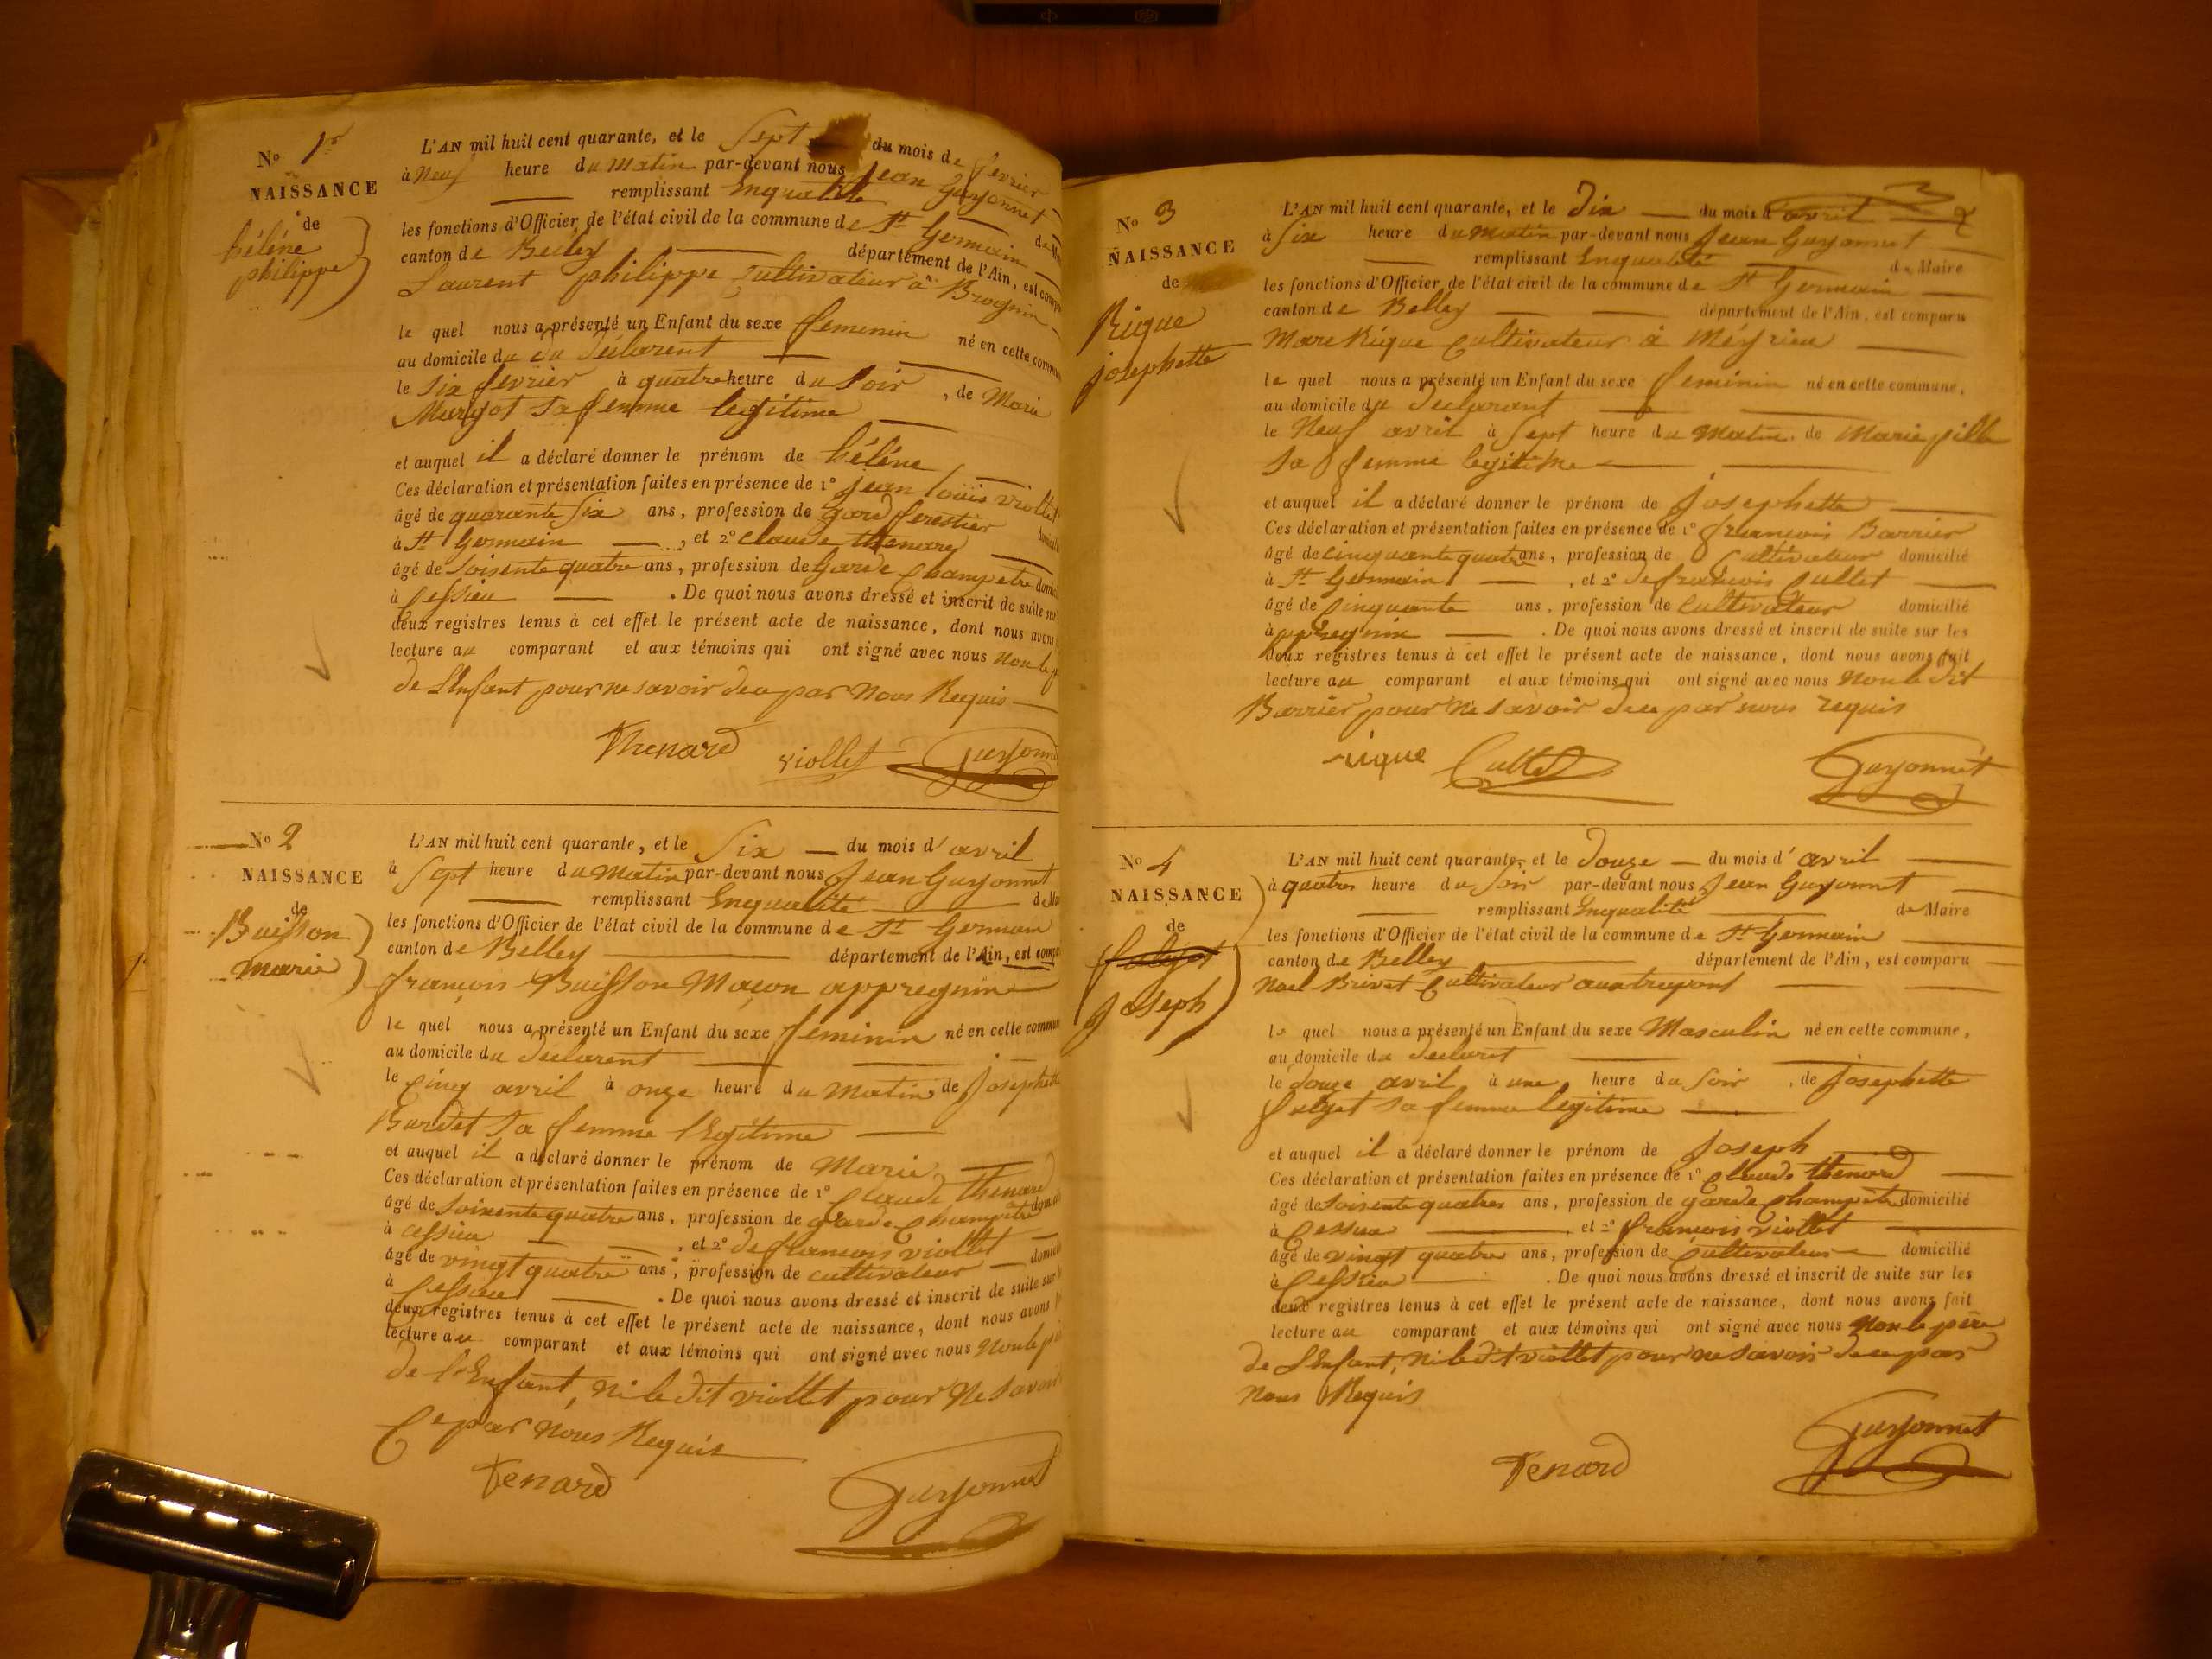 No 1r
NAISSANCE
de
hélène
philippe
L'AN mil huit cent quarante, et le Sept du mois de fevrier
à Neuf heure du Matin par-devant nous Jean Guyonnet
remplissant Enqualité de
les fonctions d'Officier de l'état civil de la commune de St Germain
canton de Belley département de l'Ain, est
Laurent philippe Cultivateur à Brognin
le quel nous a présenté un Enfant du sexe feminin né en cette
au domicile du du déclarent
le Six fevrier à quatre heure du Soir, de Marie
sa femme legitime
et auquel il a déclaré donner le prénom de hélène
Ces déclaration et présentation faites en présence de 1° Jean louis viollet
âgé de quarante Six ans, profession de gard forestier
à St Germain, et 2° claude thenard
âgé de Soisente quatre ans, profession de garde Champetre
à Cessieu. De quoi nous avons dressé et inscrit de suite sur
deux registres tenus à cet effet le présent acte de naissance, dont nous avons
lecture au comparant et aux témoins qui ont signé avec nous Non le
de L'Enfant pour ne savoir de ce par Nous Requis
Thenard viollet Guyonnet
No 2
NAISSANCE
de
Buisson
Marie
L'AN mil huit cent quarante, et le Six du mois d'avril
à Sept heure du Matin par-devant nous Jean Guyonnet
remplissant Enqualité de
les fonctions d'Officier de l'état civil de la commune de St German
canton de Belley département de l'Ain, est
françois Buisson Maçon appregnin
le quel nous a présenté un Enfant du sexe feminin né en cette
au domicile du declarent
le Cinq avril à onze heure du Matin de Josephette
Burdet Sa femme légitime
et auquel il a déclaré donner le prénom de Marie
Ces déclaration et présentation faites en présence de 1° Claude thenard
âgé de Soixente quatre ans, profession de garde Champêtre
à cessieu, et 2° de francois viollet
âgé de vingt quatre ans, profession de cultivateur
à Cessieu. De quoi nous avons dressé et inscrit de suite sur
deux registres tenus à cet effet le présent acte de naissance, dont nous avons
lecture au comparant et aux témoins qui ont signé avec nous Non le
de l'Enfant, Ni le dit viollet pour Ne Savoir
Ce par Nous Requis
Tenard Guyonnet
No 3
NAISSANCE
de
Rique
josephette
L'AN mil huit cent quarante, et le Dix du mois d'avril
à Six heure du matin par-devant nous Jean Guyonnet
remplissant Enqualité de Maire
les fonctions d'Officier de l'état civil de la commune de St Germain
canton de Belley département de l'Ain, est comparu
Marc Rique Cultivateur à Méyrieu
le quel nous a présenté un Enfant du sexe feminin né en cette commune,
au domicile du Declarant
le Neuf avril à Sept heure du Matin, de Marie pille
Sa femme legitime
et auquel il a déclaré donner le prénom de Josephette
Ces déclaration et présentation faites en présence de 1° françois Barrier
âgé de cinquante quatre ans, profession de Cultivateur domicilié
à St Germain, et 2° de francois Cullet
âgé de Cinquante ans, profession de Cultivateur domicilié
à ppregnin. De quoi nous avons dressé et inscrit de suite sur les
deux registres tenus à cet effet le présent acte de naissance, dont nous avons fait
lecture au comparant et aux témoins qui ont signé avec nous Non le dit
Barrier pour Ne savoir de ce par nous requis
rique Cullet Guyonnet
No 4
NAISSANCE
de
falyet
Joseph
L'AN mil huit cent quarante, et le douze du mois d'avril
à quatres heure du Soir par-devant nous Jean Guyonnet
remplissant Enqualité de Maire
les fonctions d'Officier de l'état civil de la commune de St Germain
canton de Belley département de l'Ain, est comparu
Noel Brivet Cultivateur auatrepont
le quel nous a présenté un Enfant du sexe Masculin né en cette commune,
au domicile du declaret
le douze avril, à une heure du Soir, de Josephette
falyet Sa femme legitime
et auquel il a déclaré donner le prénom de Joseph
Ces déclaration et présentation faites en présence de 1° Claude thenard
âgé de Soisente quatres ans, profession de garde Champêtre domicilié
à Cessieu et 2° françois viollet
âgé de vingt quatre ans, profession de Cultivateur domicilié
à Cessieu. De quoi nous avons dressé et inscrit de suite sur les
deux registres tenus à cet effet le présent acte de naissance, dont nous avons fait
lecture au comparant et aux témoins qui ont signé avec nous Non le père
de L'Enfant, Ni le dit viollet pour ne Savoir de ce par
nous Requis
Tenard Guyonnet